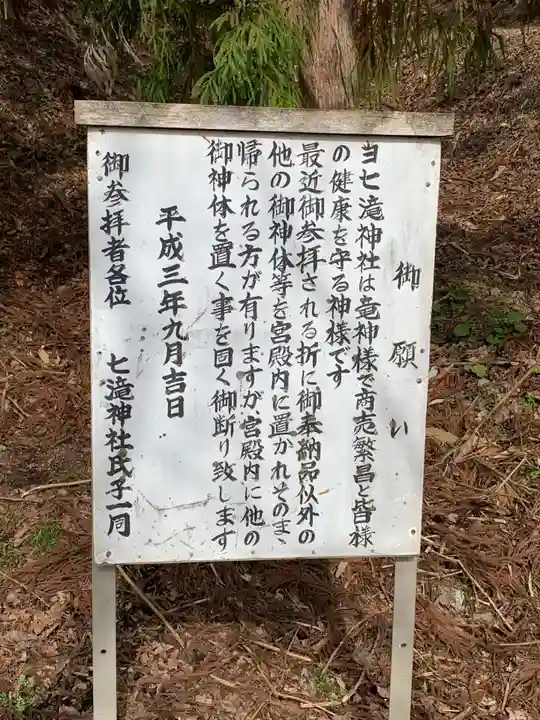 御願い
当七滝神社は竜神様で商売繁昌と皆様
の健康を守る神様です
最近御参拝される折に御奉納品以外の
他の御神体等を宮殿内に置かれそのまゝ
帰られる方が有りますが、宮殿内に他の
御神体を置く事を固く御断り致します
平成三年九月吉日
七滝神社氏子一同
御参拝者各位